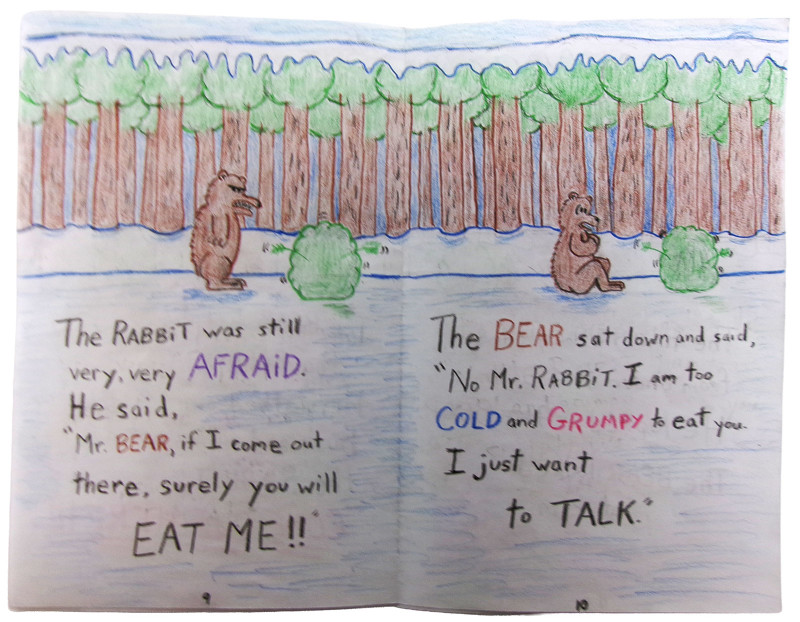 The RABBiT was still
very, very AFRAiD.
He said,
"Mr. BEAR, if I come out
there, surely you will
EAT ME!!"
9
The BEAR sat down and said,
"No Mr. RABBiT. I am too
COLD and GRUMPY to eat you.
I just want
to TALK."
10